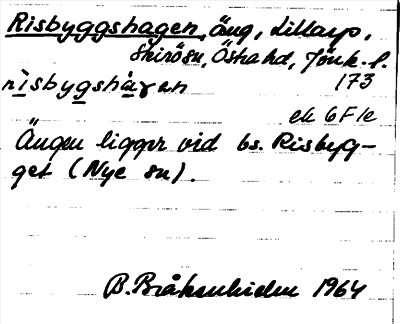 Risbyggshagen, äng, Lillarp,
Skirösn, Östra hd, Jönk.l.
rìsbygshàɣen 173
ek 6F1e
Ängen ligger vid bs. Risbyg-
get (Nye sn).
B. Bråkenhielm 1964